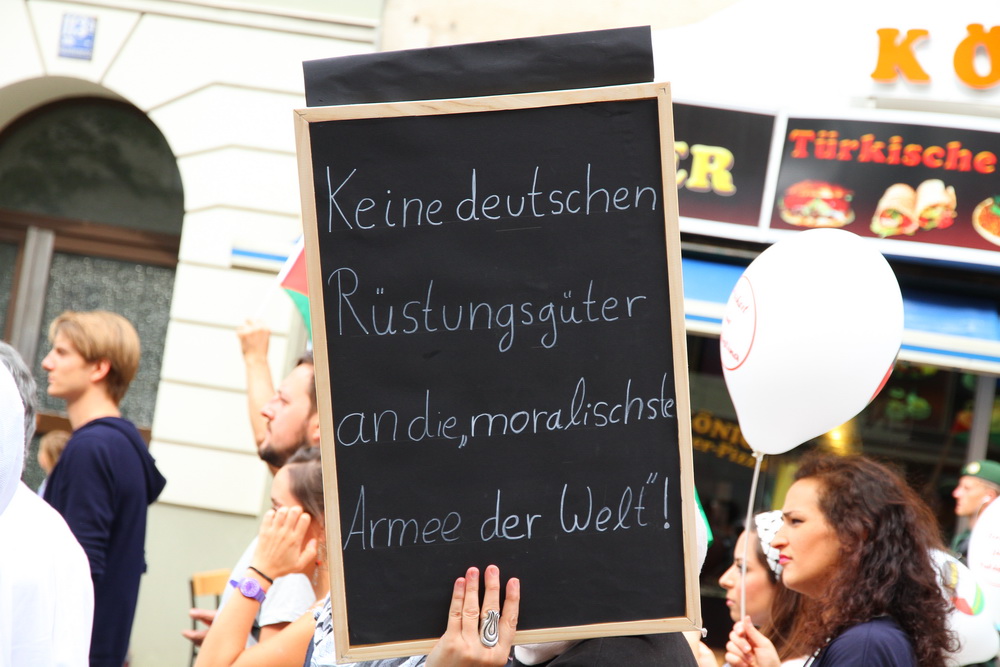 KÖ
ER
Türkische
Keine deutschen
Rüstungsgüter
an die „moralischste
Armee der Welt“!